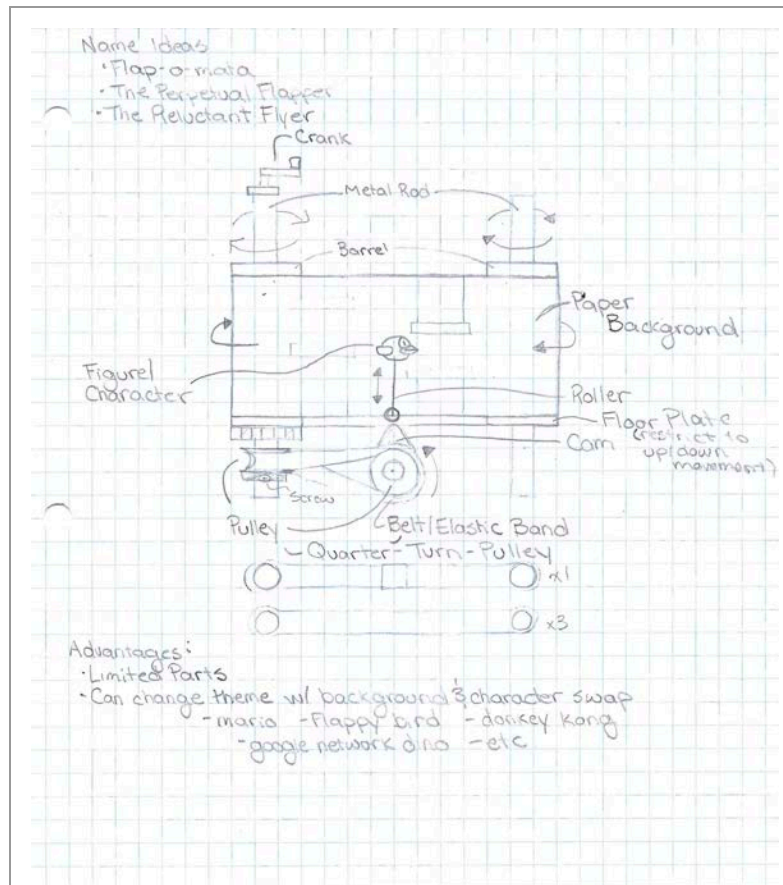 Name Ideas
• Flap-o-mata
• The Perpetual Flapper
• The Reluctant Flyer
Crank
Metal Rod
Barrel
Paper
Background
Figure/
Character
Roller
Floor Plate
(restrict to
up/down
movement)
Cam
Screw
Pulley
Belt/Elastic Band
Quarter-Turn-Pulley
x1
x3
Advantages:
• Limited Parts
• Can change theme w/ background & character swap
- mario - Flappy bird - donkey kong
- google network dino - etc